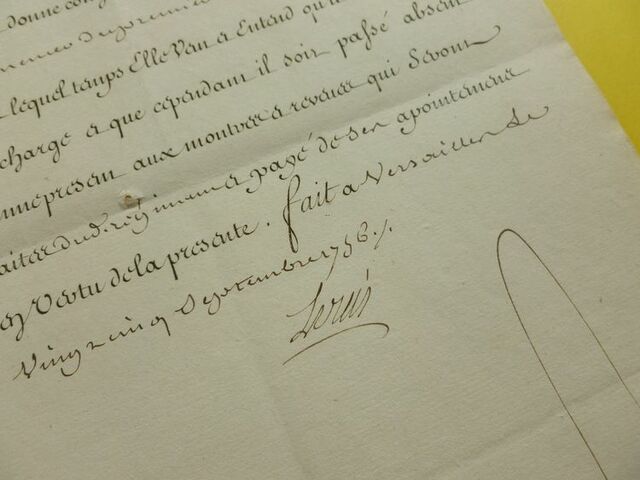 donne con
lequel temps Elle Veut et Entend qu'il
charge et que cependant il soit passé absent
comme present aux montres et reveues qui Seront
faites du d. regiment et payé de ses apointemens
en Vertu de la presente. fait a Versailles le
Vingt cinq Septembre 1756./.
Louis